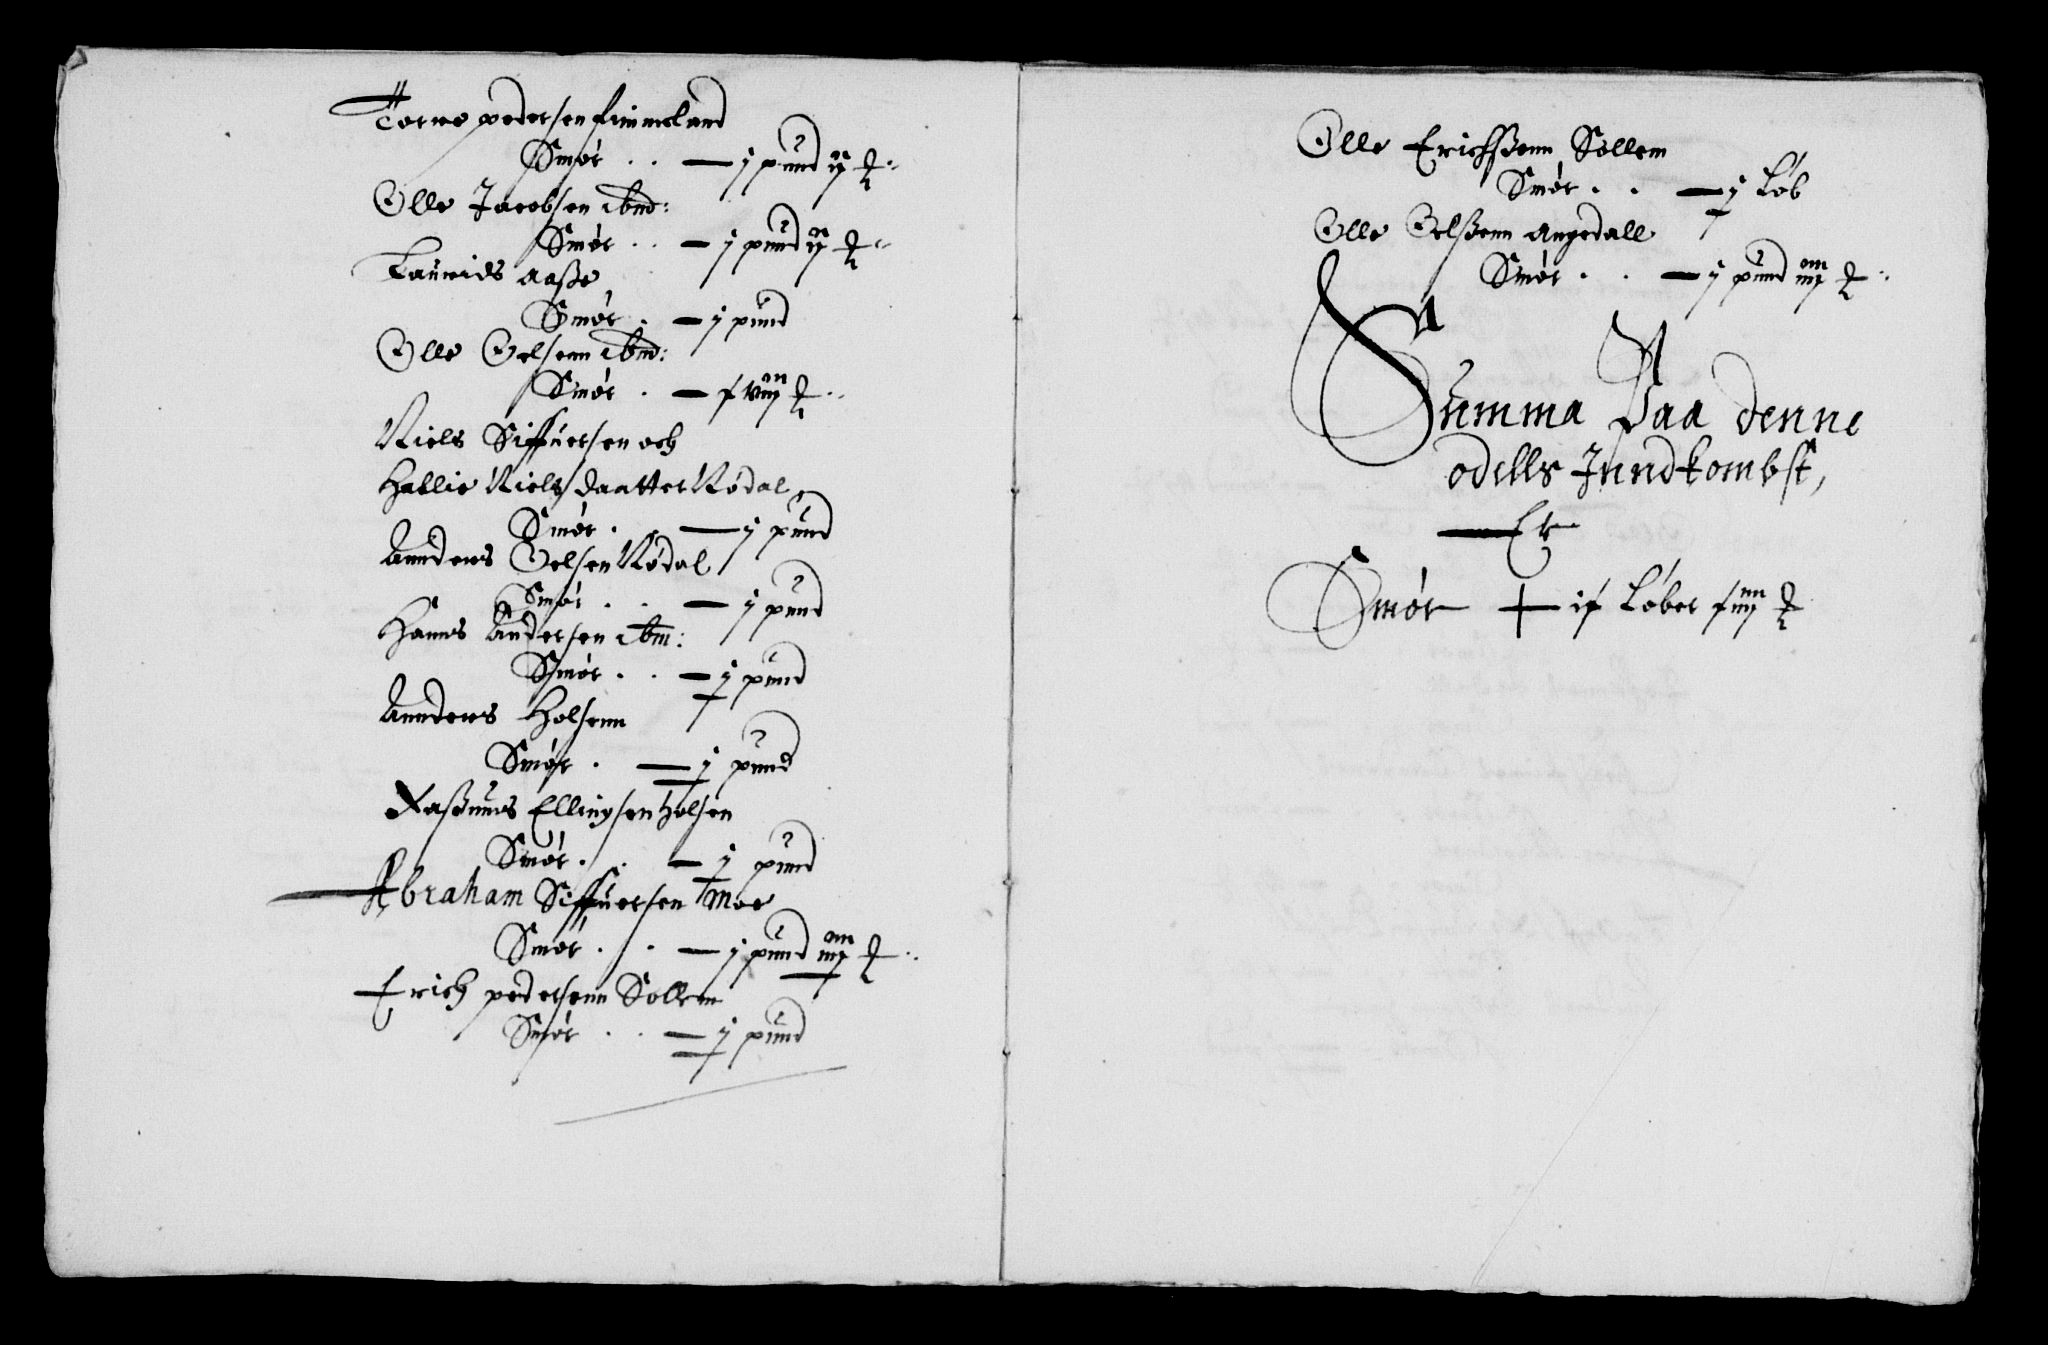 Torne pedersen fimmeland
Smør . . — j pund ij ℔.
Olle Jacobsen ibm:
Smør . . — j pund ij ℔.
Laurids Aaße
Smør . — j pund
Olle Oelsenn ibm:
Smør . — viij ℔.
Niels Siffuersen och
Hallie Niels daatter Rødal
Smør . — j pund
Anders Oelsen Rødal
Smør . . — j pund
Hanns Andersen ibm:
Smør . . — j pund
Annders Holsenn
Smør . — j pund
Raßmus Ellingsen Holsen
Smør . . — j pund
Abraham Siffuersen Moe
Smør . . — j pund iiij ℔.
Erich pedersenn Sollem
Smør . . — j pund
Olle Erichßenn Sollem
Smør . . — j Løb
Olle Oelßenn Angedall
Smør . . — j pund iiij ℔.
Summa Paa denne
odells Inndkombst,
— Er
Smør — Løber ℔